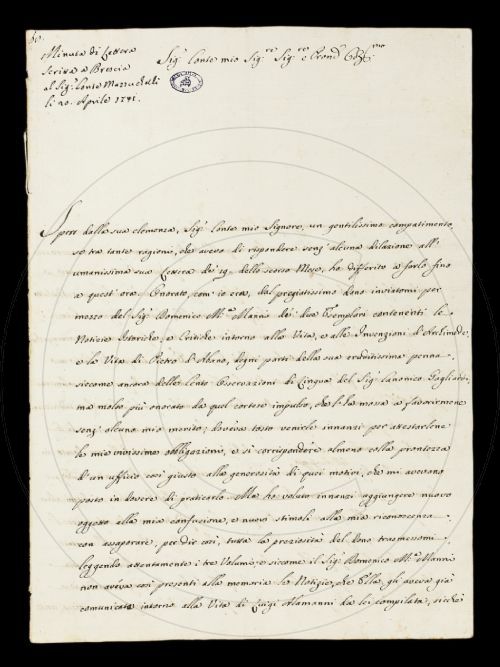 Minuta di Lettera
scritta a Brescia
al Sig.r Conte Mazzuchelli
li 20. Aprile 1741.
Sig.r Conte mio Sig.re Sig.re e Pron.e
Spero dalla sua clemenza, Sig.r Conte mio Signore, un gentilissimo compatimento,
se tra tante ragioni, che avevo di rispondere senz' alcuna dilazione all'
umanissima sua Lettera de' 19. dello scorso Mese, ho differito a farlo fino
a quest' ora. Onorato, com' io era, dal pregiatissimo dono inviatomi per
mezzo del Sig.r Domenico M.a Manni de' due Esemplari contenenti le
Notizie Istoriche, e Critiche intorno alla Vita, e alle Invenzioni d'Archimede,
e la Vita di Pietro d'Abano, degni parti della sua eruditissima penna,
siccome ancora delle Cento Osservazioni di Lingua del Sig.r Canonico Gagliardi,
ma molto più onorato da quel cortese impulso, che l'ha mossa a favorirmene
senz' alcuno mio merito; doveva tosto venirle innanzi per attestarlene
le mie vivissime obbligazioni, e sì corrispondere almeno colla prontezza
d'un ufficio così giusto alla generosità di quei motivi, che mi avevano
posto in dovere di praticarlo. Ma ho voluto innanzi aggiungere nuovo
oggetto alla mia confusione, e nuovi stimoli alla mia riconoscenza
con assaporare, per dir così, tutta la preziosità del dono trasmessomi
leggendo attentamente i tre Volumi; e siccome il Sig.r Domenico M.a Manni
non aveva così presenti alla memoria le Notizie, che Ella gli aveva già
comunicate intorno alla Vita di Luigi Alamanni da lei compilata, sicchè